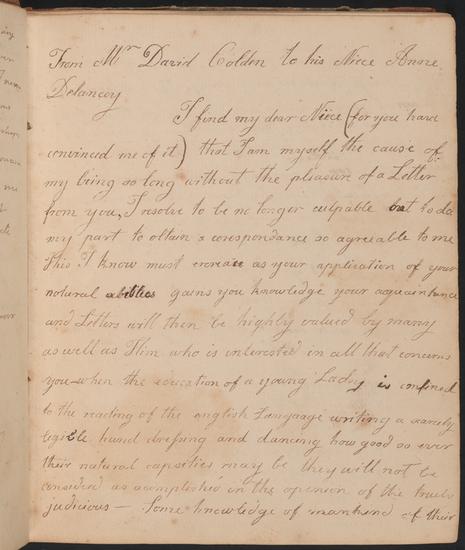 From Mr David Colden to his Niece Anne
Delancey
I find my dear Niece (for you have
convinced me of it) that I am myself the cause of
my being so long without the pleasure of a Letter
from you, I resolve to be no longer culpable but to do
my part to obtain a corespondance so agreable to me
This I know must encrease as your application of your
natural abilities gains you knowledge your aquaintance
and Letters will then be highly valued by many
as well as Him who is interested in all that concerns
you – when the education of a young Lady is confined
to the reading of the english Language writing a scarcly
legible hand dressing and dancing how good so ever
their natural capasities may be they will not be
considerd as acomplished in the openion of the truly
judicious – Some knowledge of mankind of their